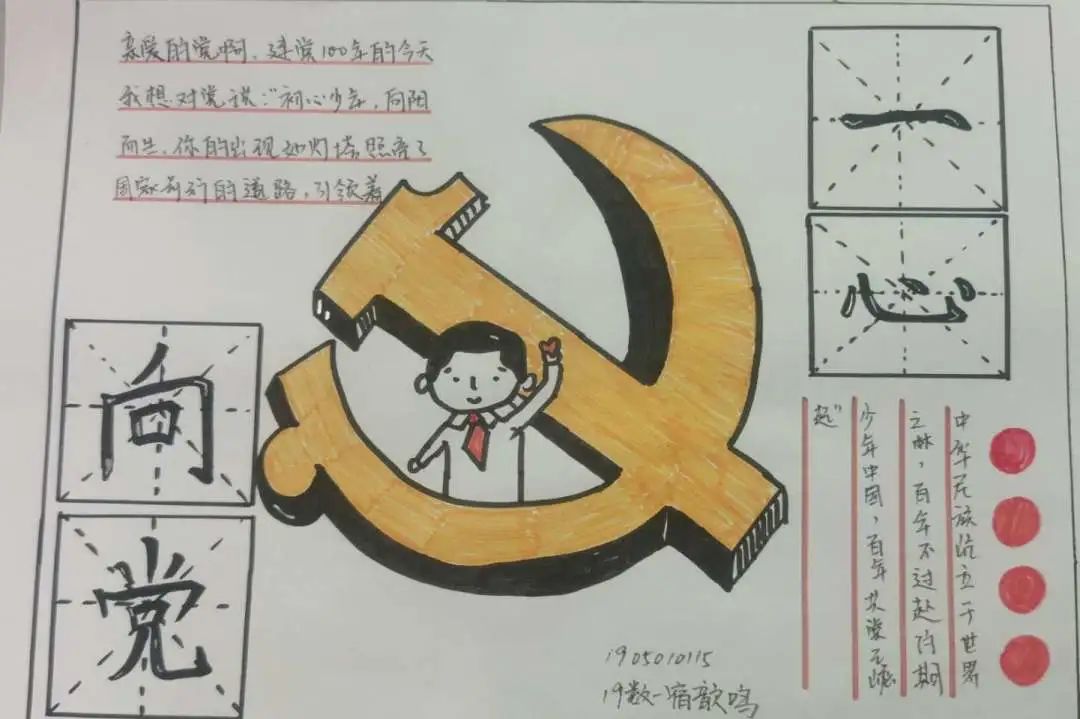 亲爱的党啊，建党100年的今天
我想对党说："初心少年，向阳
而生，你的出现如灯塔照亮了
国家前行的道路，引领着
一
心
向
党
中华民族屹立于世界
之林，百年不过赴期
少年中国，百年党正崛
起"
1905010115
19数一宿歆鸣